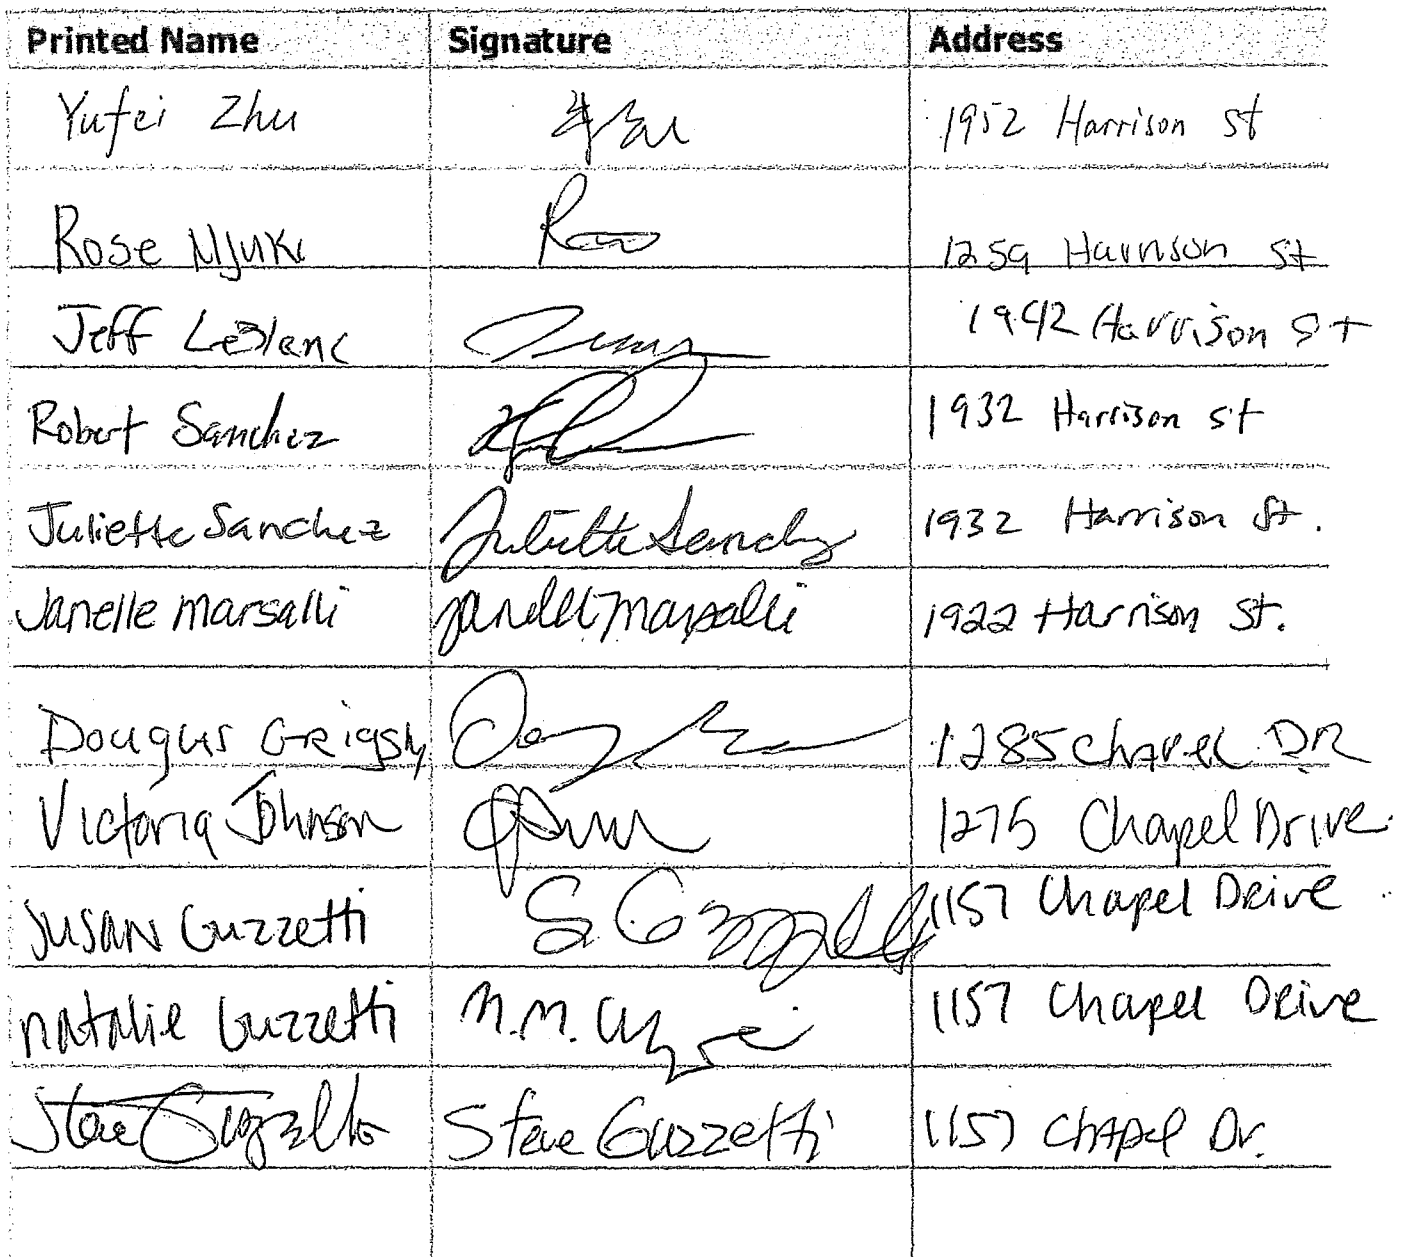 Printed Name Signature Address
Yufei Zhu 1952 Harrison St
Rose Njuki 1259 Harrison St
Jeff LeBlanc 1942 Harrison St
Robert Sanchez 1932 Harrison St
Juliette Sanchez Juliette Sanchez 1932 Harrison St.
Janelle Marsalli Janelle Marsalli 1922 Harrison St.
Dougus Grigsby 1285 Chapel DR
Victoria Johnson 1275 Chapel Drive
Susan Guzzetti S Guzzetti 1157 Chapel Drive
Natalie Guzzetti N.M. 1157 Chapel Drive
Steve Steve Guzzetti 1157 Chapel Dr.